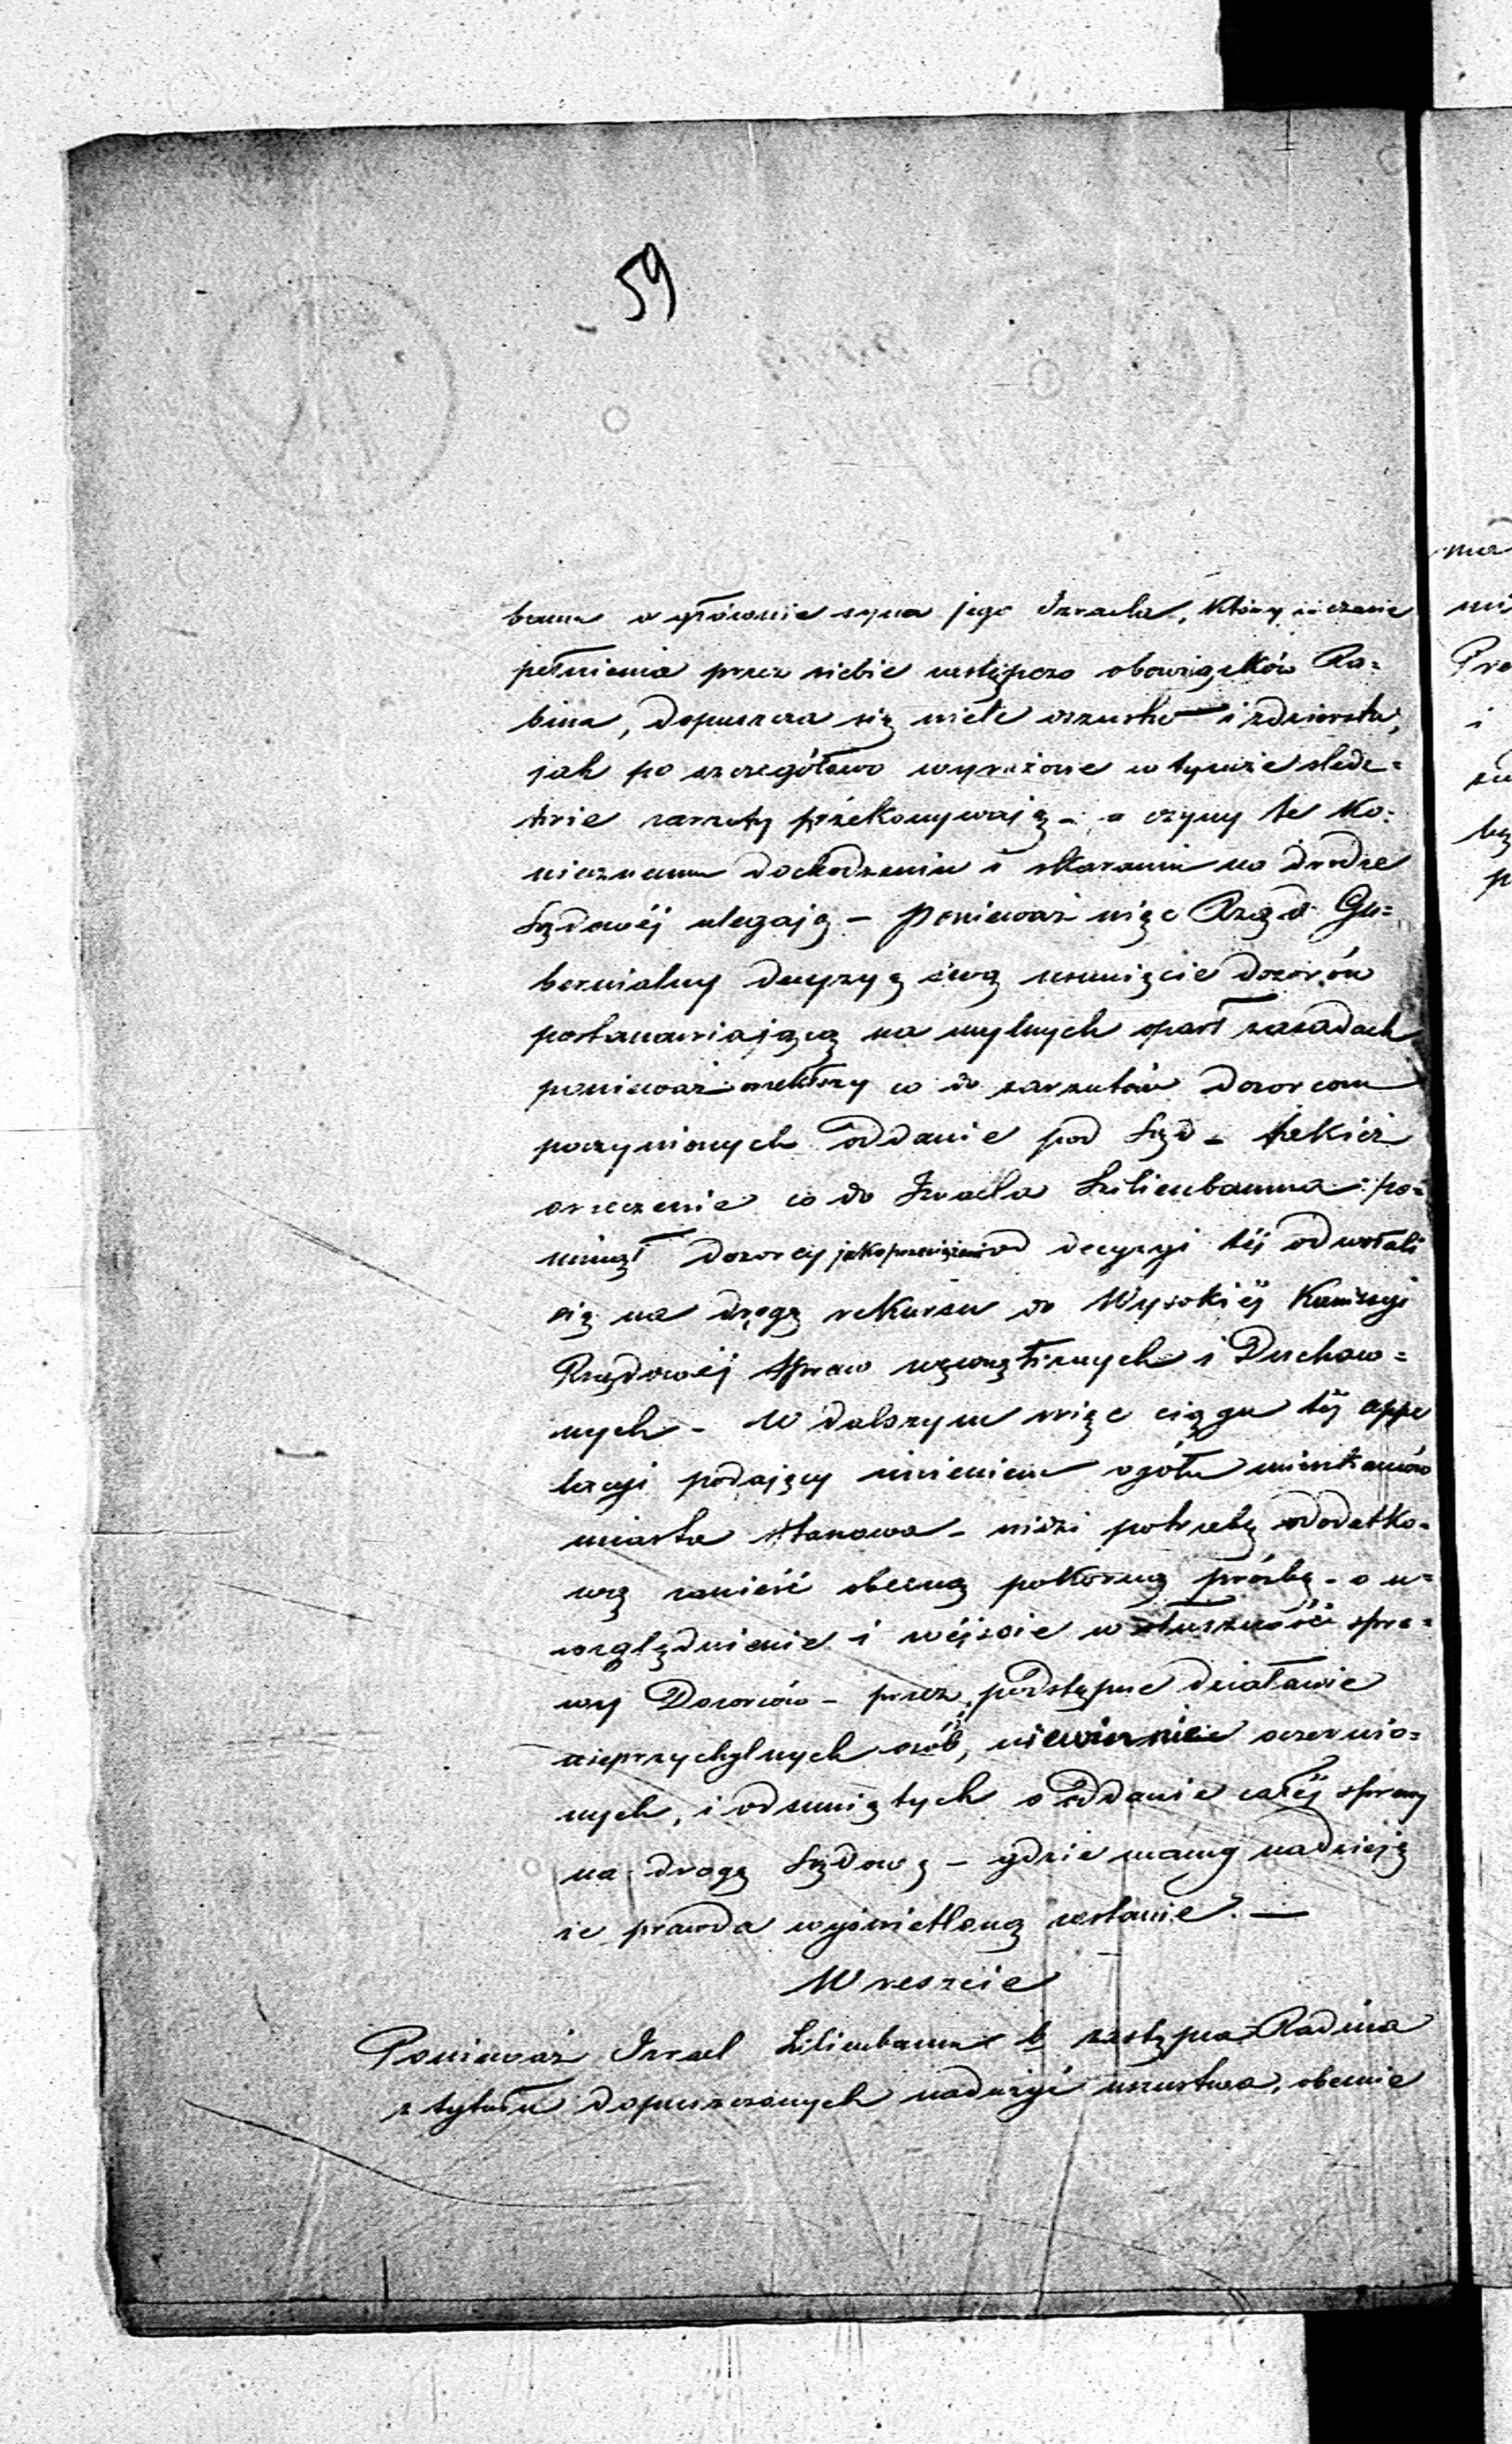 59
bauma a głównie syna jego Izraela, który w czasie
pełnienia przez siebie zastępczo obowiązków Ra=
bina, dopuszcza się wiele oszustw i zdzierstw,
jak po szczegółowo wyrażone w tymże śledz=
twie zarzuty przekonywają – a czyny te ko=
niecznemu dochodzeniu i skaraniu na drodze
Sądowéj ulegają – Ponieważ więc Rząd Gu=
bernialny decyzyą swą usunięcie dozorców
postanawiającą na mylnych oparł zasadach
ponieważ orzekłszy co do zarzutów dozorcom
poczynionych oddanie pod Sąd – takież
orzeczenie co do Izraela Lilienbauma po=
minął dozorcy jako od decyzyi téj odwołali
się na drogę rekursu do Wysokiéj Kommissyi
Rządowéj Spraw wewnętrznych i Duchow=
nych – W dalszym więc ciągu téj appe
lacyi podający imieniem ogółu mieszkańców
miasta – widzi potrzebę dodatko=
wą zanieść obecną pokorną prośbę – o u=
względnienie i wejście w słuszność spra=
wy Dozorców – przez podstępne działanie
nieprzychylnych osób, niewinnie oczernio=
nych, i odsuniętych o oddanie całéj sprawy
na drogę Sądową – gdzie mamy nadzieję
że prawda wyświetloną zostanie. –
Wreszcie
Ponieważ Izrael Lilienbaum b zastępca Rabina
z tytułu dopuszczonych nadużyć oszustwa, obecnie